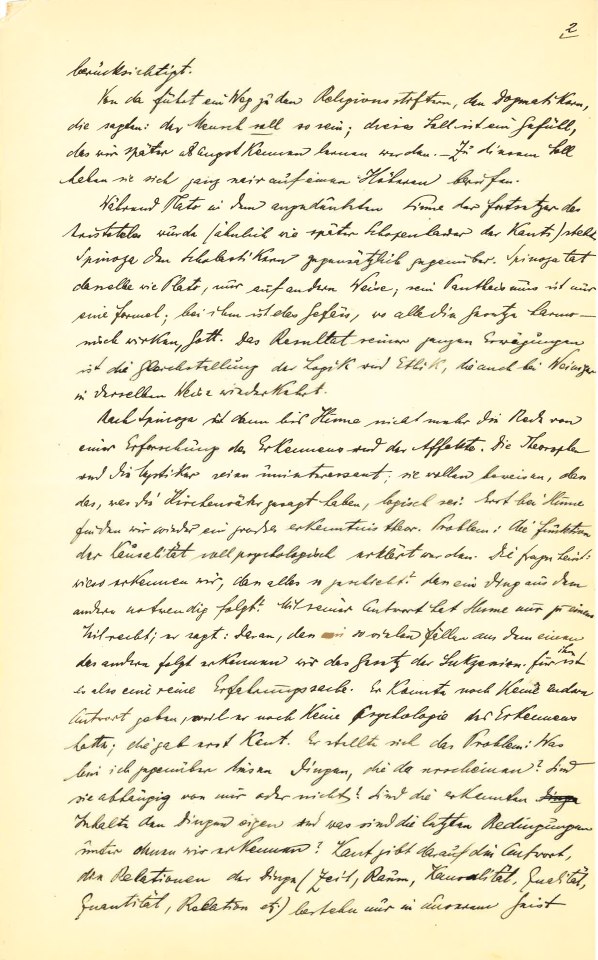 2
berücksichtigt.
Von da führt ein Weg zu den Religionsstiftern, den Dogmatikern,
die sagten: der Mensch soll so sein; dieses Soll ist ein Gefühl,
das wir später als Angst kennen lernen werden. – Zu diesem Soll
haben sie sich ganz naiv auf einen Höheren berufen.
Während Plato in dem angedeuteten Sinne der Fortsetzer des
Aristoteles wurde (ähnlich wie später Schopenhauer der Kants) stellt
Spinoza den Scholastikern gegensätzlich gegenüber. Spinoza tat
dasselbe wie Plato, nur auf andere Weise; sein Pantheismus ist nur
eine Formel; bei ihm ist das Gefäss, wo alle die Gesetze harmo–
nisch wirken, Gott. Das Resultat seiner ganzen Erwägungen
ist die Gleichstellung der Logik und Ethik, die auch bei Weininger
in derselben Weise wiederkehrt.
Nach Spinoza ist dann bis Hume nicht mehr die Rede von
einer Erforschung des Erkennens und der Affekte. Die Theosophen
und die Mystiker seien uninteressant; sie wollen beweisen, dass
das, was die Kirchenväter gesagt haben, logisch sei. Erst bei Hume
finden wir wieder ein großes erkenntnistheor. Problem: die Funktion
der Kausalität soll psychologisch erklärt werden. Die Frage heisst:
wieso erkennen wir, dass alles so geschieht? dass ein Ding aus dem
andern notwendig folgt? Mit seiner Antwort hat Hume nur zu einem
Teil recht; er sagt: daran, dass in so vielen Fällen aus dem einen
das andere folgt erkennen wir das Gesetz der Sukzession. für ihn ist
es also eine reine Erfahrungssache. Er konnte noch keine andere
Antwort geben, weil er noch keine Psychologie des Erkennens
hatte; die gab erst Kant. Er stellte sich das Problem: Was
bin ich gegenüber diesen Dingen, die da erscheinen? Sind
sie abhängig von mir oder nicht? Sind die erkannten Dinge
Inhalte den Dingen eigen und was sind die letzten Bedingungen
unter denen wir erkennen? Kant gibt darauf die Antwort,
die Relationen der Dinge (Zeit, Raum, Kausalität, Qualität,
Quantität, Relation etz) bestehn nur in unserem Geist